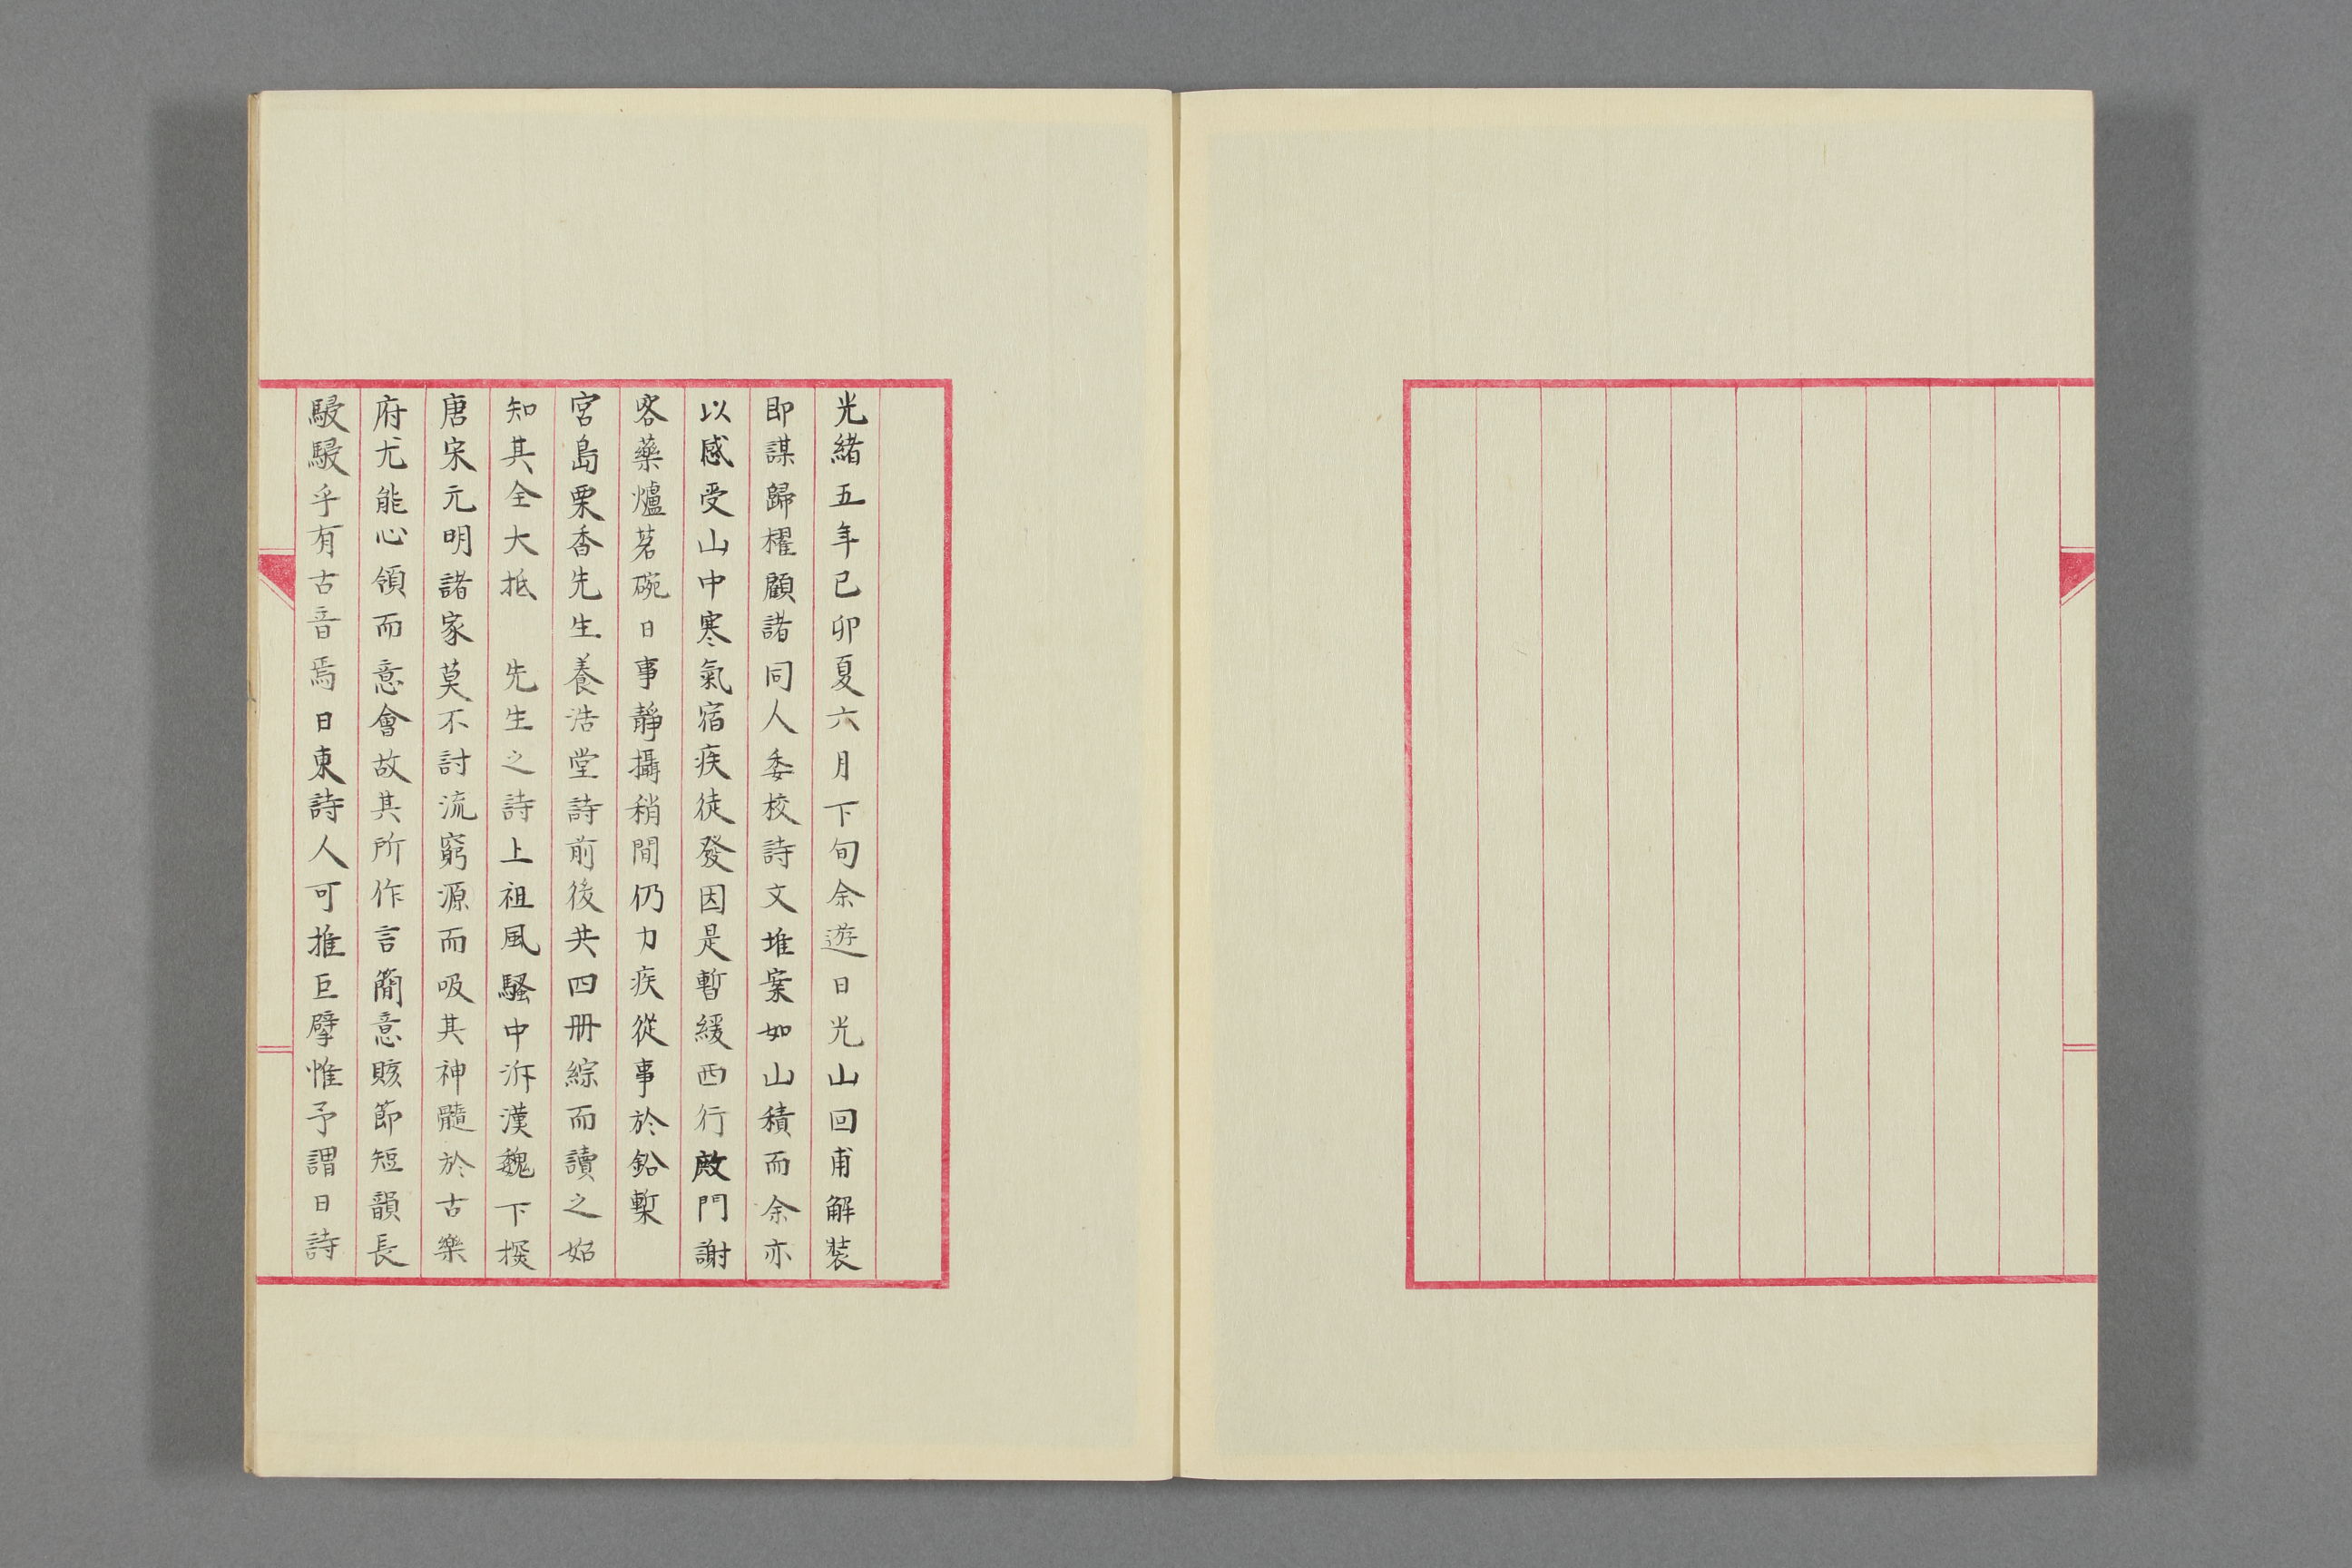 光緒五年己卯夏六月下旬余遊日光山回甫解裝
即謀歸櫂顧諸同人委校詩文堆案如山積而余亦
以感受山中寒氣宿疾徒發因是暫緩西行啟門謝
客藥爐茗碗日事靜攝稍間仍力疾從事於鉛槧
宮島栗香先生養浩堂詩前後共四冊綜而讀之始
知其全大抵　先生之詩上祖風騷中泝漢魏下探
唐宋元明諸家莫不討流窮源而吸其神髓於古樂
府尤能心領而意會故其所作言簡意賅節短韻長
駸駸乎有古音焉日東詩人可推巨擘惟予謂日詩